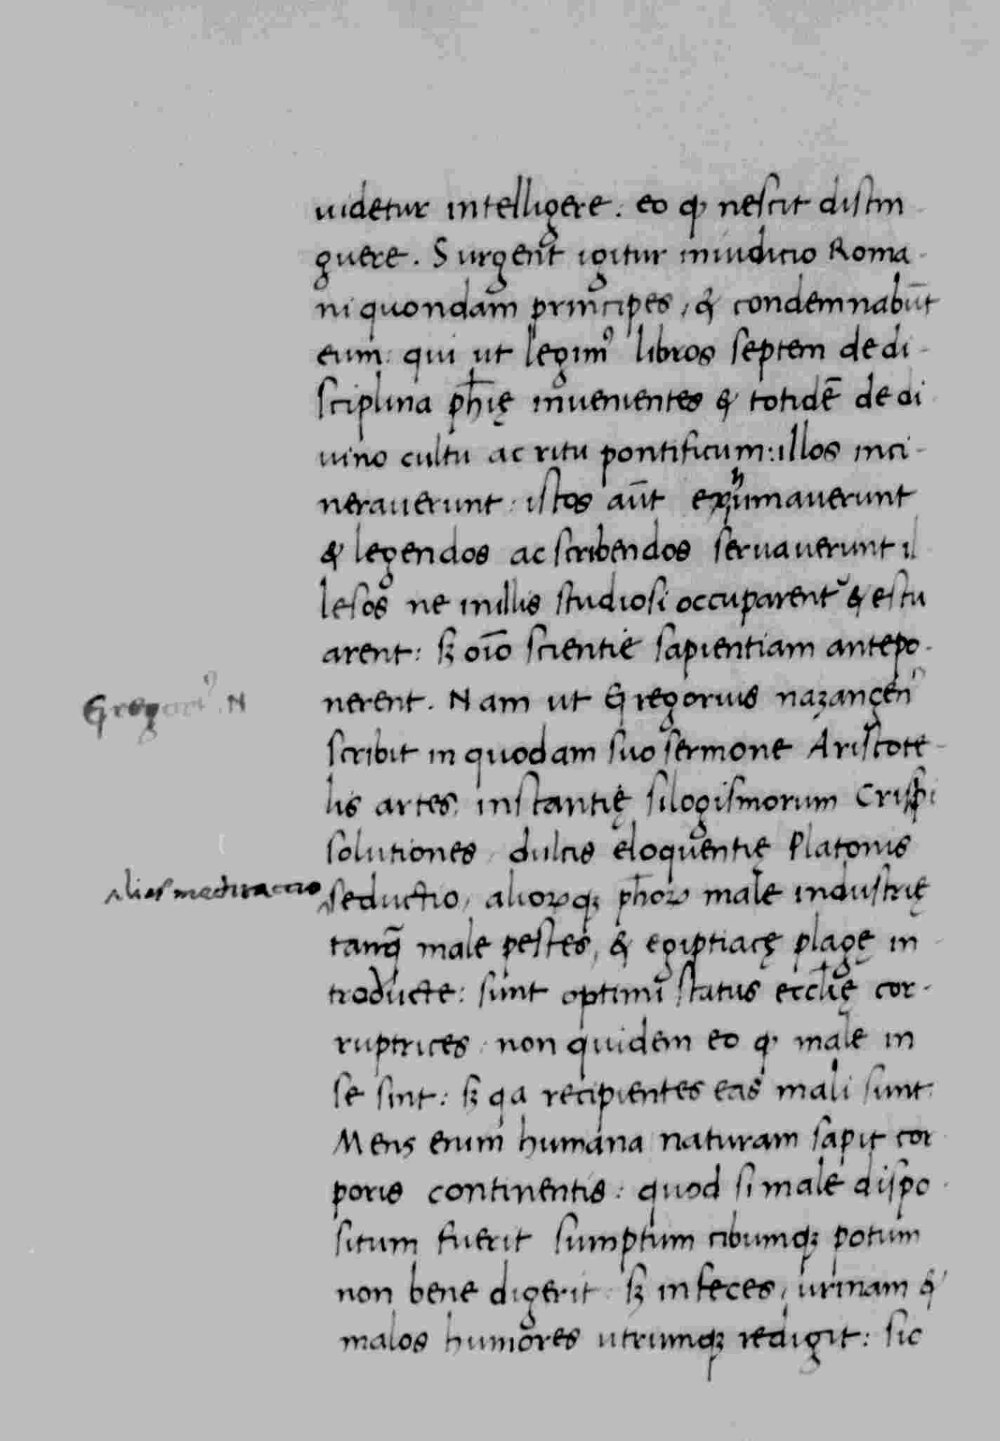 uidetur intelligere. eo ꝙ nescit distin
guere. Surgent igitur iniudicio Roma-
ni quondam principes, & condemnabūt
eum: qui ut legimꝰ libros septem de di-
sciplina ph̄ię inuenientes & totidē de di
uino cultu ac ritu pontificum: illos inci-
nerauerunt: istos aūt exhumauerunt
& legendos ac scribendos seruauerunt il
lesos ne in illis studiosi occuparent᷑ & estu
arent: sꝫ oīo scientie sapientiam antepo-
nerent. Nam ut Gregorius nazançenꝰ
Gregoriꝰ. N
scribit in quodam suo sermone Aristote-
lis artes, instantię silogismorum Crispi
solutiones, dulcis eloquentię Platonis
alias medicatio
seductio, aliorꝝqꝫ ph̄orꝝ male industrię
tanq̄ male pestes, & egiptiacę plagę in-
troducte: sunt optimi status eccl̄ię cor-
ruptrices non quidem eo ꝙ male in
se sint: sꝫ qa recipientes eas mali sunt.
Mens enim humana naturam sapit cor
poris continentis: quod si male dispo-
situm fuerit sumptum cibumqꝫ potum
non bene digerit: sꝫ in feces, urinam &
malos humores utrumqꝫ redigit: sic